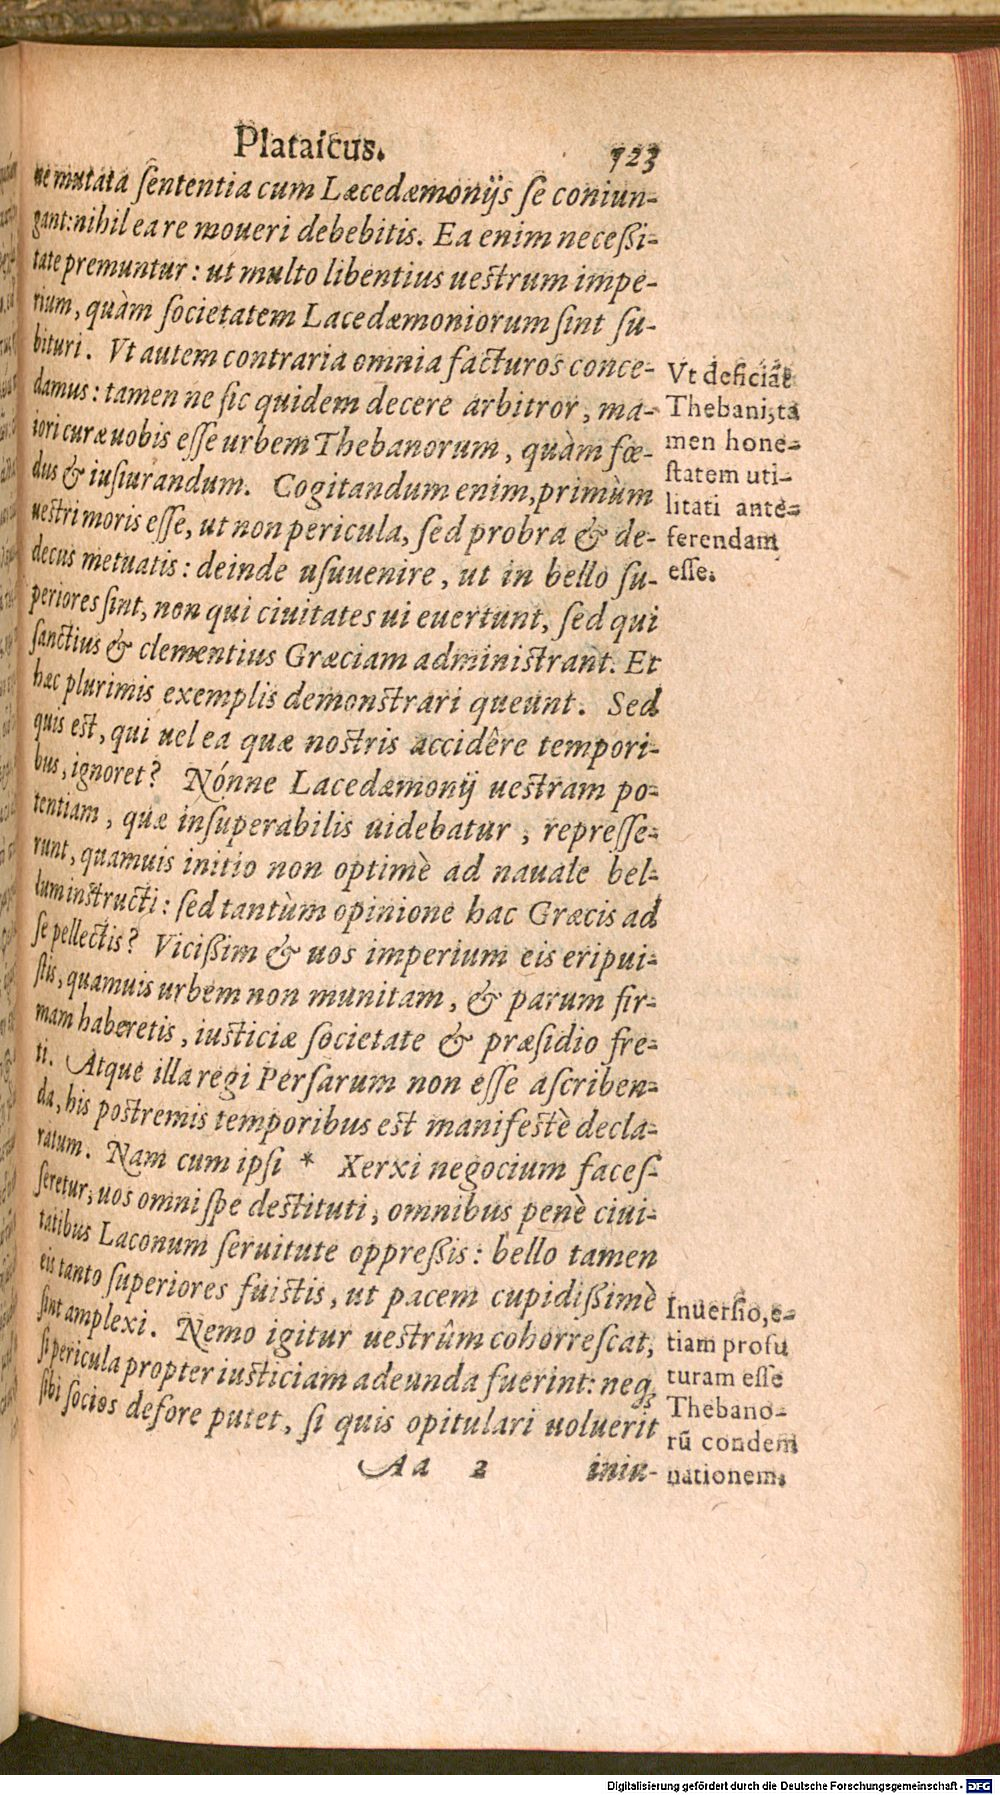 Plataicus. 723
ne mutata ſententia cum Lacedæmonijs ſe coniun-
gant: nihil ea re moueri debebitis. Ea enim neceßi-
tate premuntur: ut multo libentius ueſtrum impe-
rium, quàm ſocietatem Lacedæmoniorum ſint ſu-
bituri. Vt autem contraria omnia facturos conce-
damus: tamen ne ſic quidem decere arbitror, ma-
iori curæ uobis eſſe urbem Thebanorum, quàm fœ-
dus & iuſiurandum. Cogitandum enim, primùm
ueſtri moris eſſe, ut non pericula, ſed probra & de-
decus metuatis: deinde uſuuenire, ut in bello ſu-
periores ſint, non qui ciuitates ui euertunt, ſed qui
ſanctius & clementius Græciam adminiſtrant. Et
hæc plurimis exemplis demonſtrari queunt. Sed
quis eſt, qui uel ea quæ noſtris accidêre tempori-
bus, ignoret? Nónne Lacedæmonij ueſtram po-
tentiam, quæ inſuperabilis uidebatur, repreſſe-
runt, quamuis initio non optimè ad nauale bel-
lum inſtructi: ſed tantùm opinione hac Græcis ad
ſe pellectis? Vicißim & uos imperium eis eripui-
ſtis, quamuis urbem non munitam, & parum fir-
mam haberetis, iuſticiæ ſocietate & præſidio fre-
ti. Atque illa regi Perſarum non eſſe aſcriben-
da, his poſtremis temporibus eſt manifeſtè decla-
ratum. Nam cum ipſi * Xerxi negocium faceſ-
ſeretur, uos omni ſpe deſtituti, omnibus penè ciui-
tatibus Laconum ſeruitute oppreßis: bello tamen
eis tanto ſuperiores fuiſtis, ut pacem cupidißimè
ſint amplexi. Nemo igitur ueſtrûm cohorreſcat,
ſi pericula propter iuſticiam adeunda fuerint: neq;
ſibi ſocios defore putet, ſi quis opitulari uoluerit
Aa 2 iniu-
Vt deficiãt
Thebani, ta
men hone-
ſtatem uti-
litati ante-
ferendam
eſſe.
Inuerſio, e-
tiam profu
turam eſſe
Thebano-
rũ condem
nationem.
Digitalisierung gefördert durch die Deutsche Forschungsgemeinschaft - DFG